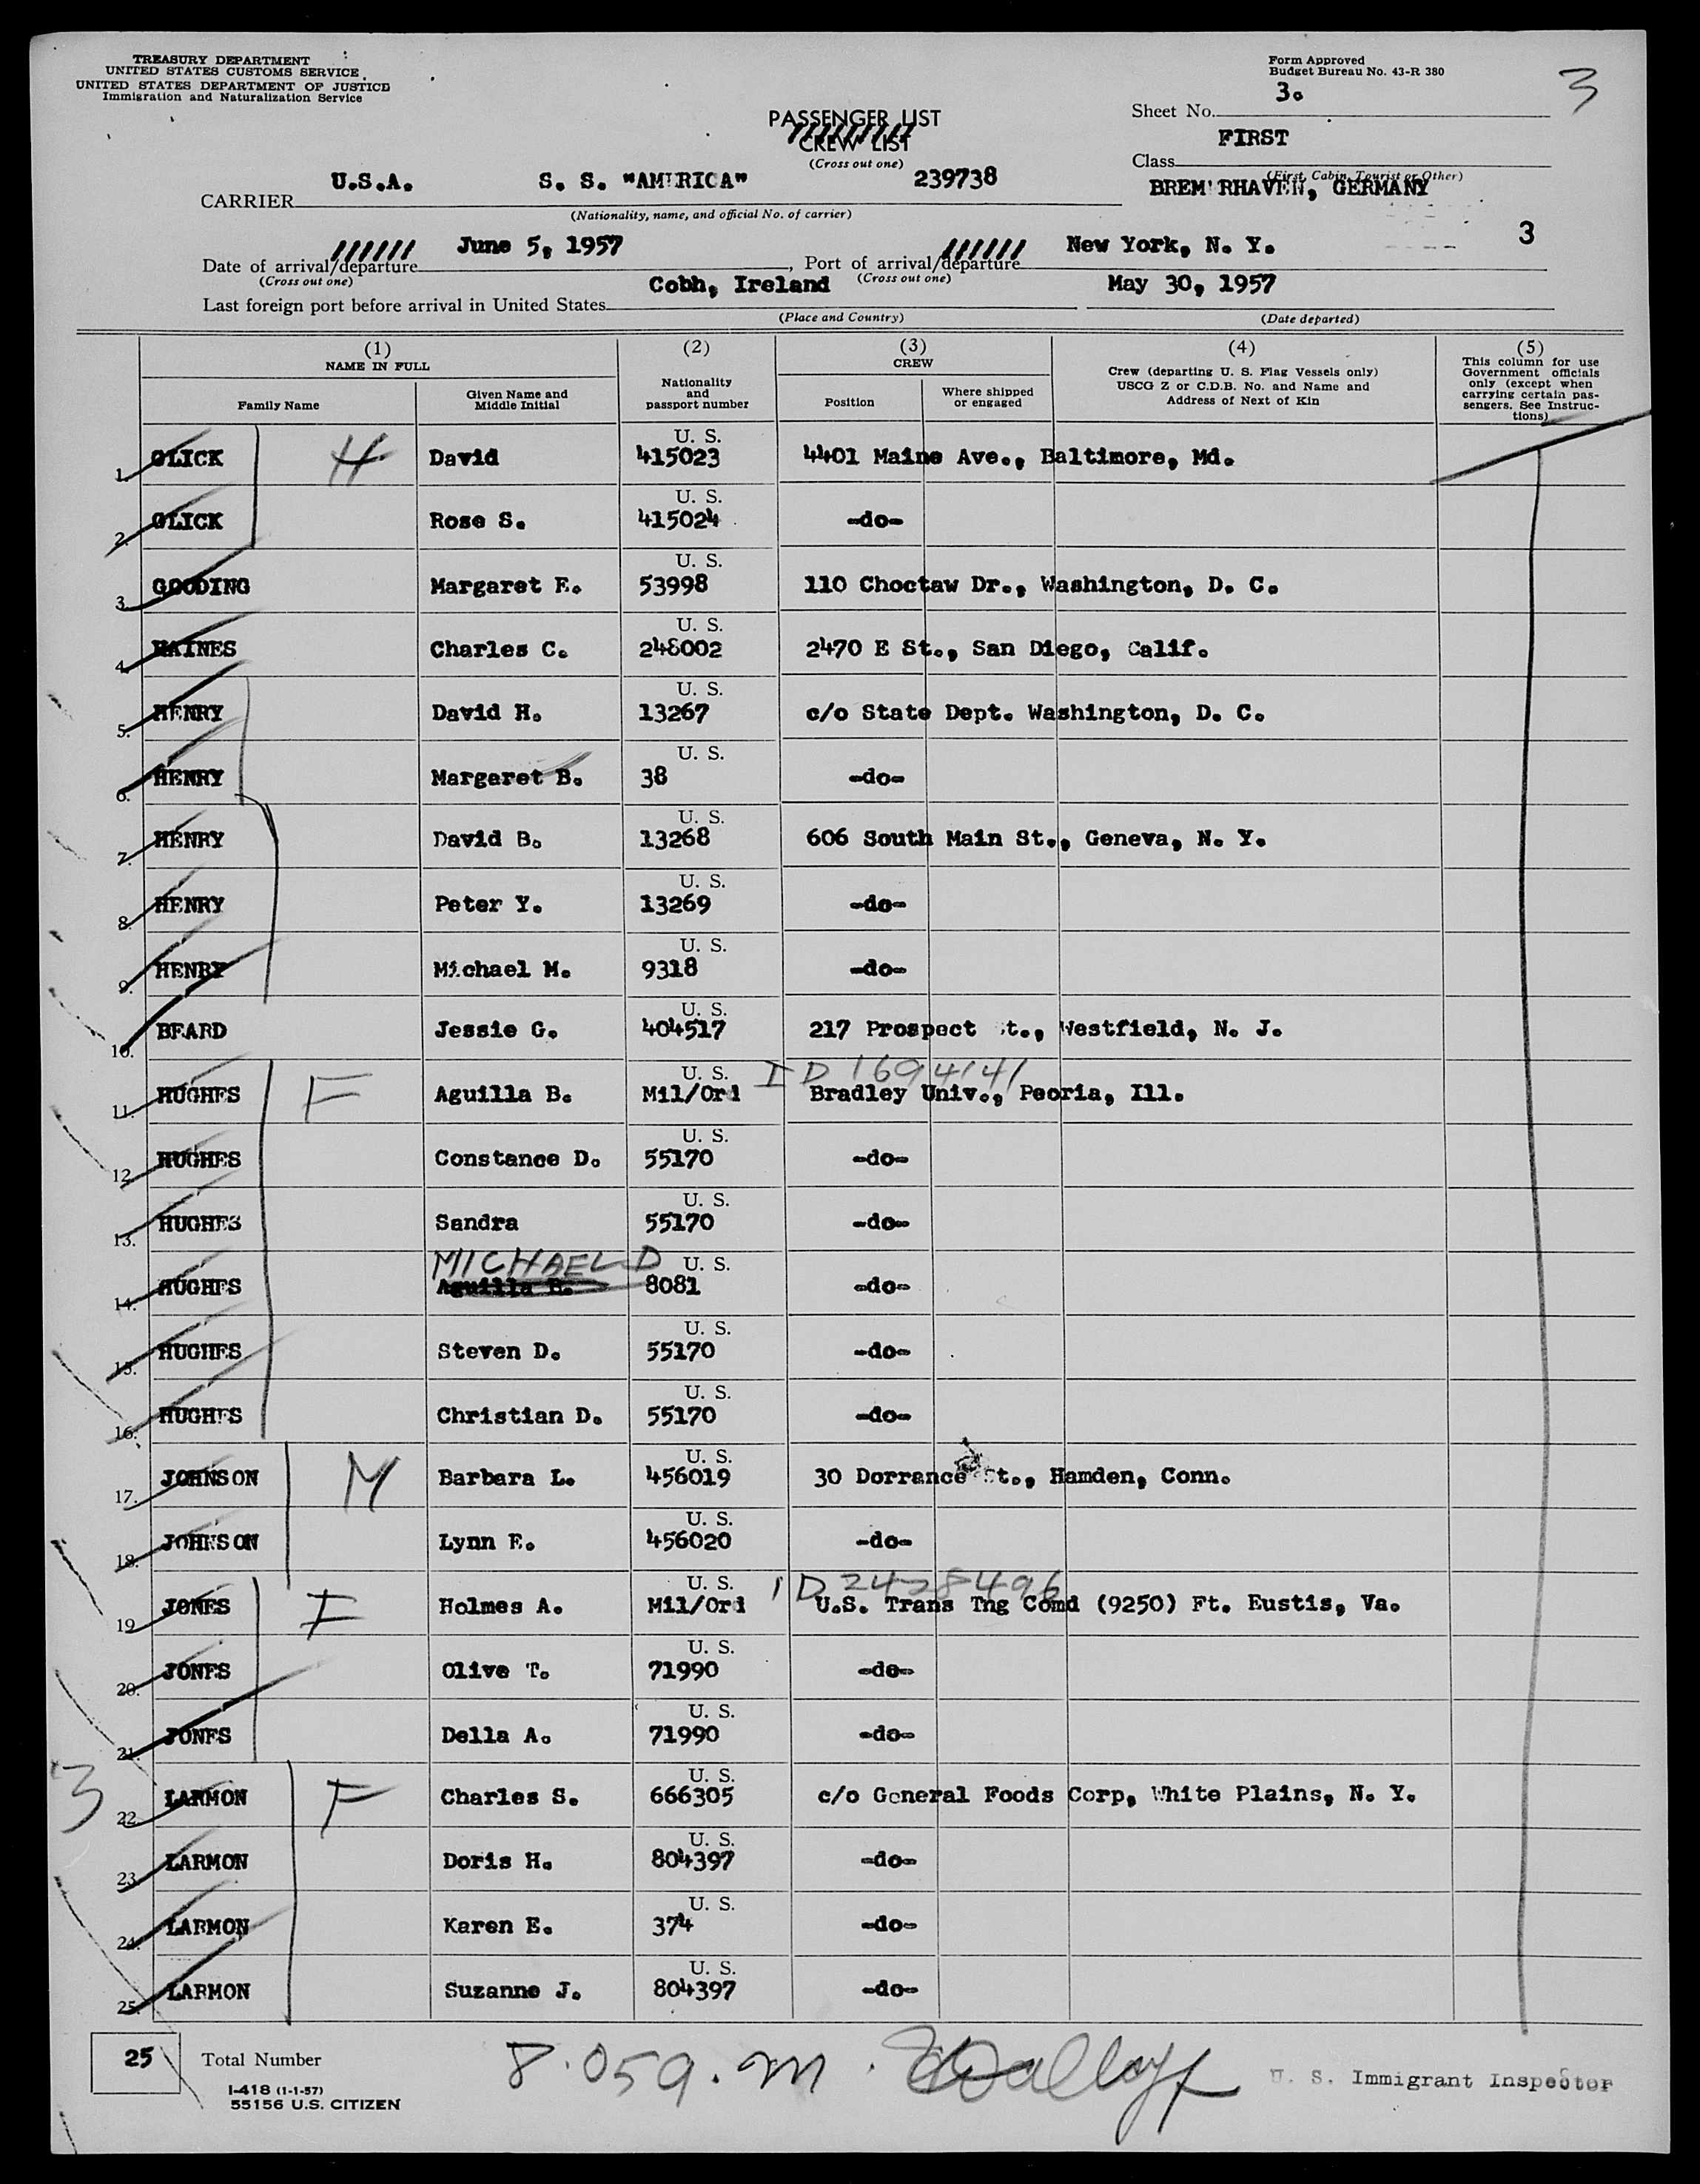 TREASURY DEPARTMENT
UNITED STATES CUSTOMS SERVICE
UNITED STATES DEPARTMENT OF JUSTICE
Immigration and Naturalization Service
Form Approved
Budget Bureau No. 43-R 380
3
Sheet No. 3.
PASSENGER LIST
CREW LIST
(Cross out one)
Class FIRST
(First, Cabin, Tourist or Other)
CARRIER U.S.A. S. S. "AMERICA" 239738
(Nationality, name, and official No. of carrier)
BREMERHAVEN, GERMANY
3
Date of arrival/departure June 5, 1957, Port of arrival/departure New York, N. Y.
(Cross out one) (Cross out one)
Last foreign port before arrival in United States Cobh, Ireland May 30, 1957
(Place and Country) (Date departed)
(1) (2) (3) (4) (5)
NAME IN FULL
Family Name
Given Name and Middle Initial
Nationality and passport number
CREW
Position
Where shipped or engaged
Crew (departing U. S. Flag Vessels only) USCG Z or C.D.B. No. and Name and Address of Next of Kin
This column for use Government officials only (except when carrying certain passengers. See Instructions)
1. GLICK H David U. S. 415023 4401 Maine Ave., Baltimore, Md.
2. GLICK Rose S. U. S. 415024 -do-
3. GOODING Margaret E. U. S. 53998 110 Choctaw Dr., Washington, D. C.
4. HAINES Charles C. U. S. 248002 2470 E St., San Diego, Calif.
5. HENRY David H. U. S. 13267 c/o State Dept. Washington, D. C.
6. HENRY Margaret B. U. S. 38 -do-
7. HENRY David B. U. S. 13268 606 South Main St., Geneva, N. Y.
8. HENRY Peter Y. U. S. 13269 -do-
9. HENRY Michael M. U. S. 9318 -do-
10. BEARD Jessie G. U. S. 404517 217 Prospect St., Westfield, N. J.
ID 1694141
11. HUGHES F Aguilla B. U. S. Mil/Ord Bradley Univ., Peoria, Ill.
12. HUGHES Constance D. U. S. 55170 -do-
13. HUGHES Sandra U. S. 55170 -do-
MICHAEL D
14. HUGHES Aguilla B. U. S. 8081 -do-
15. HUGHES Steven D. U. S. 55170 -do-
16. HUGHES Christian D. U. S. 55170 -do-
17. JOHNSON M Barbara L. U. S. 456019 30 Dorrance St., Hamden, Conn.
18. JOHNSON Lynn E. U. S. 456020 -do-
ID 2428496
19. JONES I Holmes A. U. S. Mil/Ord U.S. Trans Tng Comd (9250) Ft. Eustis, Va.
20. JONES Olive T. U. S. 71990 -do-
21. JONES Della A. U. S. 71990 -do-
3
22. LARMON F Charles S. U. S. 666305 c/o General Foods Corp, White Plains, N. Y.
23. LARMON Doris H. U. S. 804397 -do-
24. LARMON Karen E. U. S. 374 -do-
25. LARMON Suzanne J. U. S. 804397 -do-
25 Total Number
I-418 (1-1-57)
55156 U.S. CITIZEN
8.059.m.
U. S. Immigrant Inspector